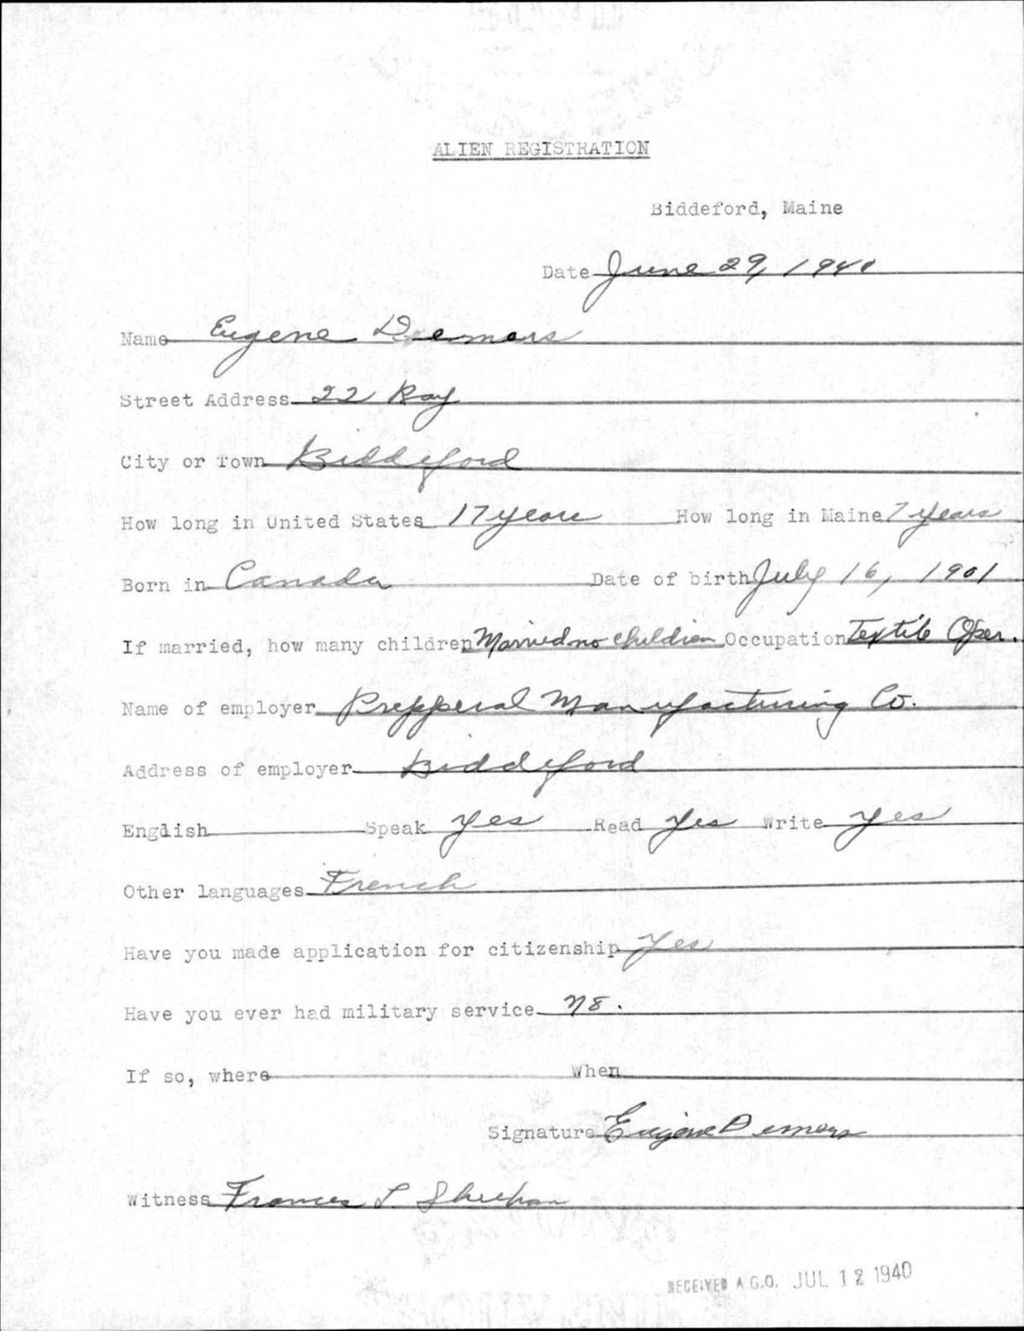 ALIEN REGISTRATION
Biddeford, Maine
Date June 29, 1940
Name Eugene Demers
Street Address 22 Ray
City or Town Biddeford
How long in United States 17 years How long in Maine 7 years
Born in Canada Date of birth July 16, 1901
If married, how many children Married no children Occupation Textile Oper.
Name of employer Pepperal Manufacturing Co.
Address of employer Biddeford
English Speak yes Read yes Write yes
Other languages French
Have you made application for citizenship Yes
Have you ever had military service No.
If so, where When
Signature Eugene Demers
Witness Frances L. Sheehan
RECEIVED A.G.O. JUL 12 1940